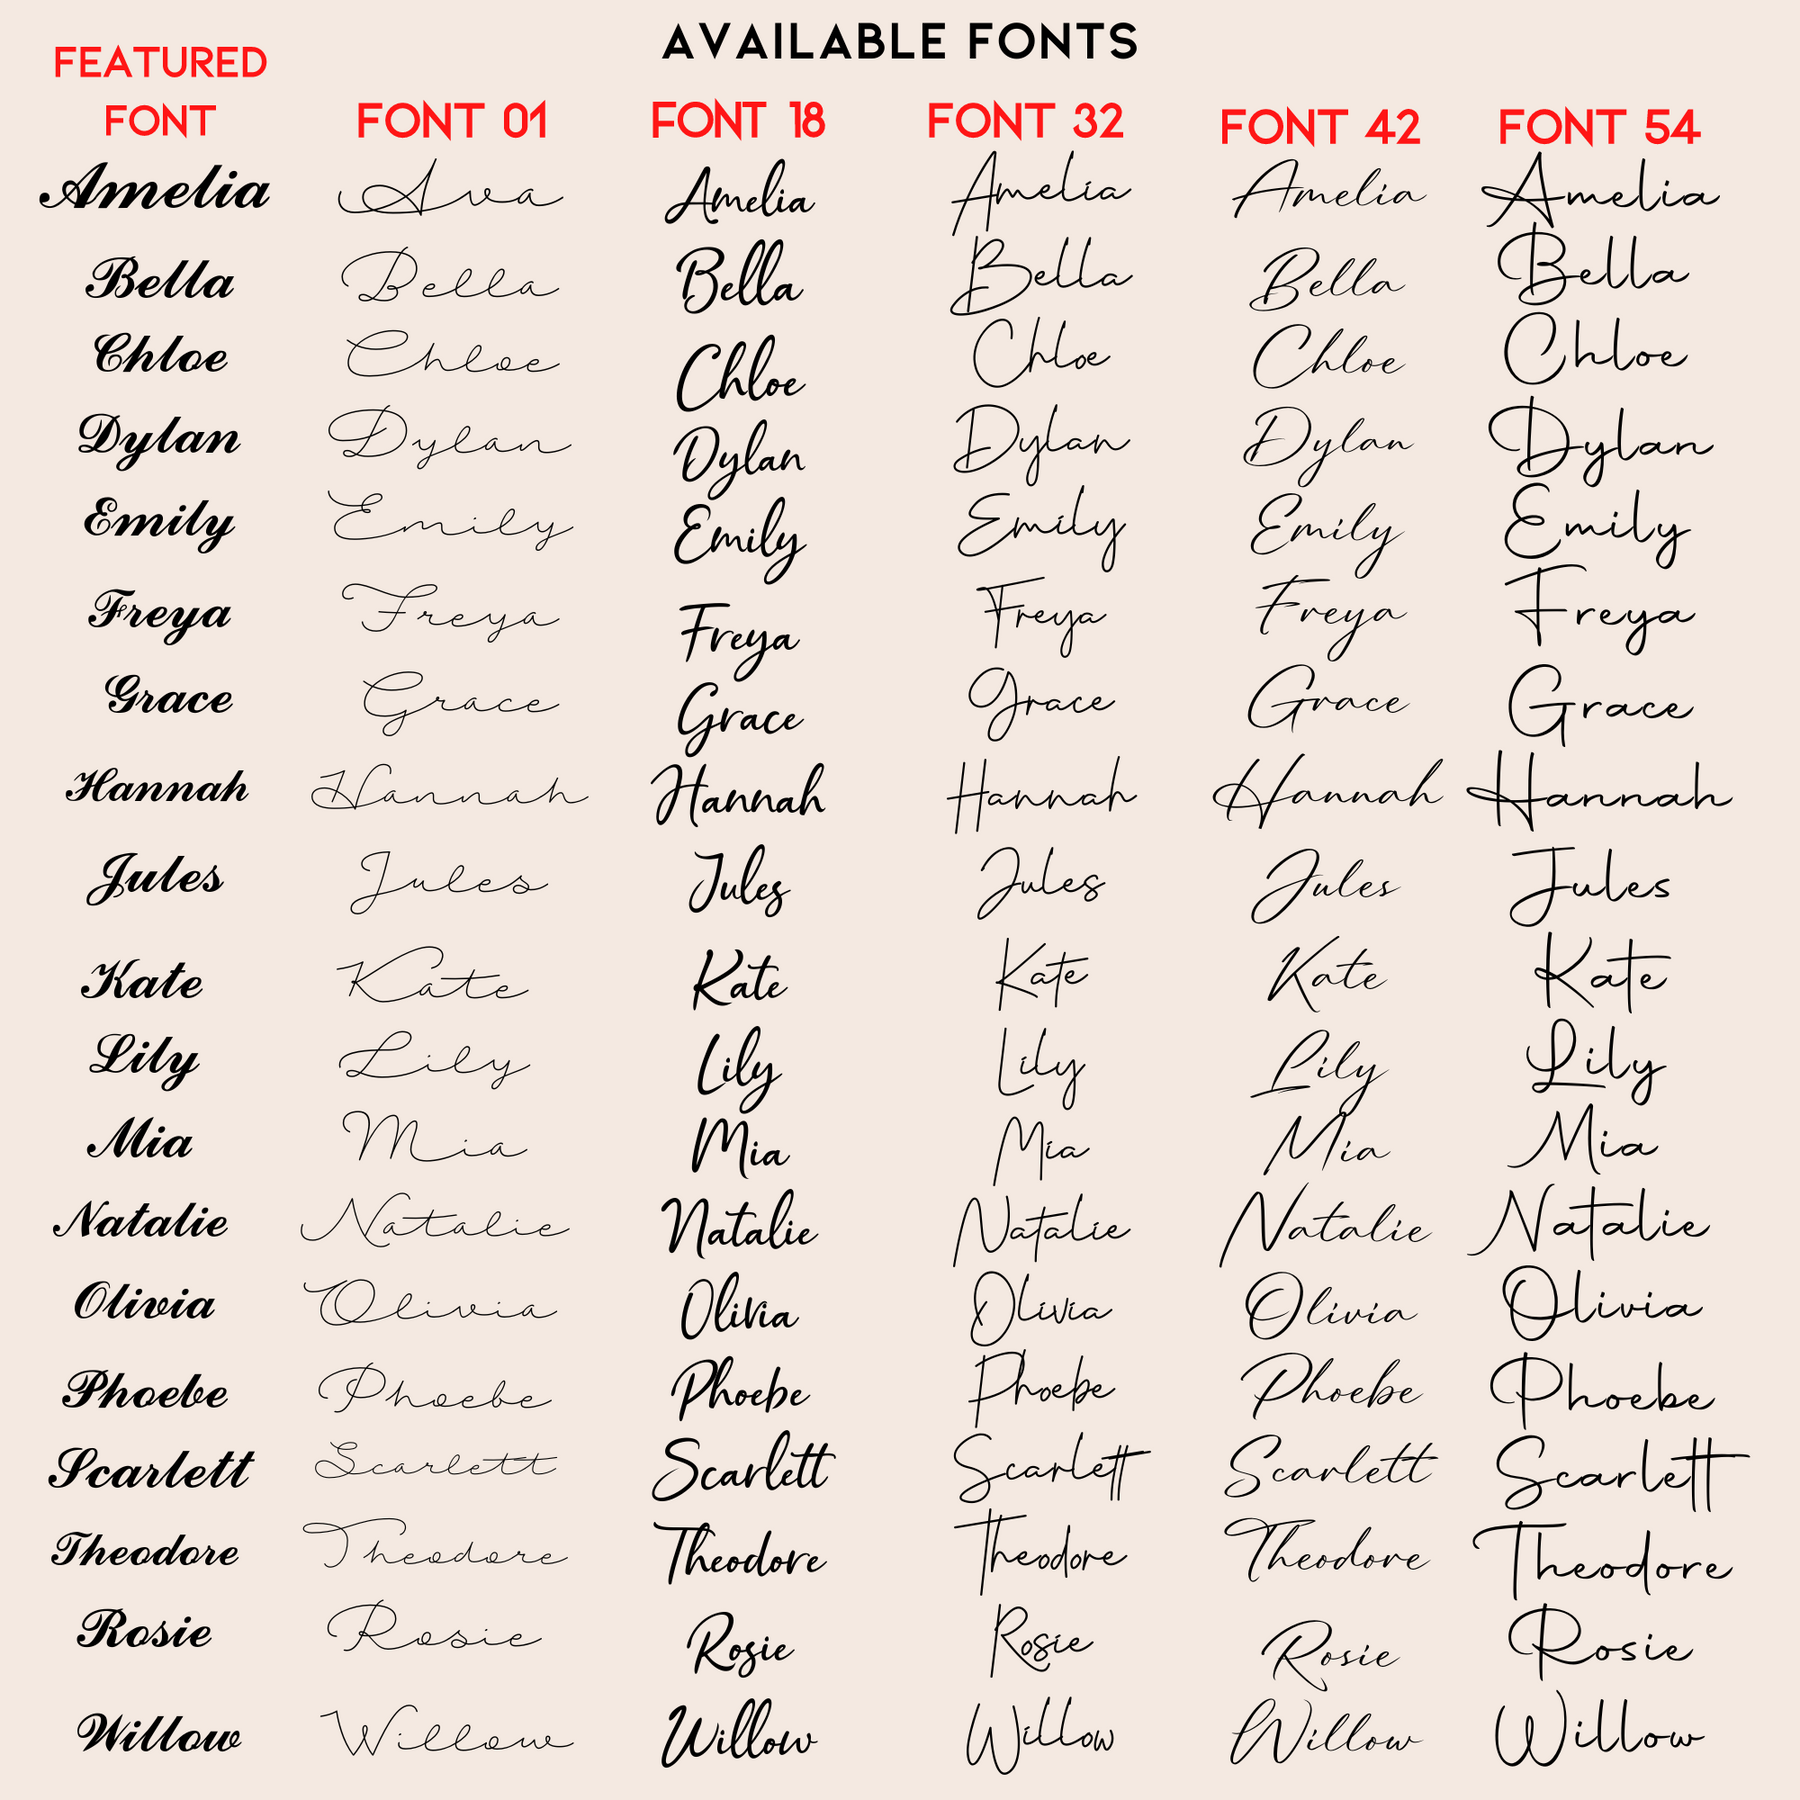 AVAILABLE FONTS
FEATURED FONT FONT 01 FONT 18 FONT 32 FONT 42 FONT 54
Amelia Ava Amelia Amelia Amelia Amelia
Bella Bella Bella Bella Bella Bella
Chloe Chloe Chloe Chloe Chloe Chloe
Dylan Dylan Dylan Dylan Dylan Dylan
Emily Emily Emily Emily Emily Emily
Freya Freya Freya Freya Freya Freya
Grace Grace Grace Grace Grace Grace
Hannah Hannah Hannah Hannah Hannah Hannah
Jules Jules Jules Jules Jules Jules
Kate Kate Kate Kate Kate Kate
Lily Lily Lily Lily Lily Lily
Mia Mia Mia Mia Mia Mia
Natalie Natalie Natalie Natalie Natalie Natalie
Olivia Olivia Olivia Olivia Olivia Olivia
Phoebe Phoebe Phoebe Phoebe Phoebe Phoebe
Scarlett Scarlett Scarlett Scarlett Scarlett Scarlett
Theodore Theodore Theodore Theodore Theodore Theodore
Rosie Rosie Rosie Rosie Rosie Rosie
Willow Willow Willow Willow Willow Willow